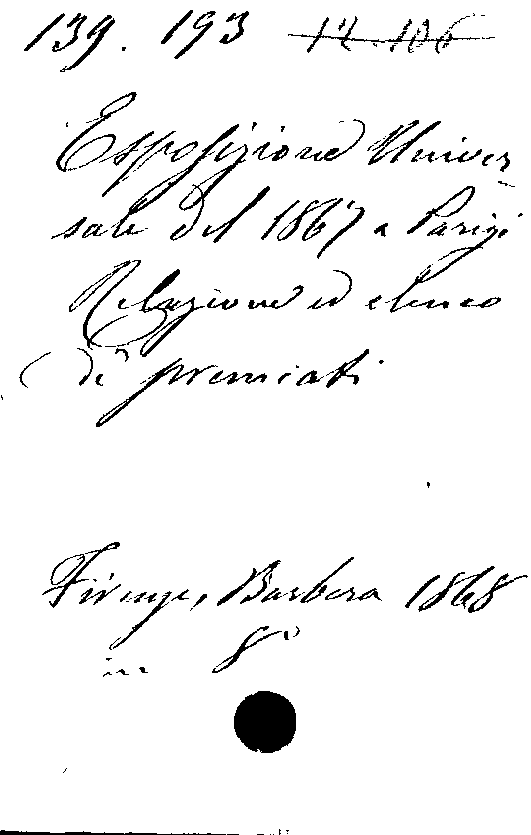 139. 193 12.106
Esposizione Univer-
sale del 1867 a Parigi
Relazione ed elenco
di premiati
Firenze, Barbera 1868
in 8°